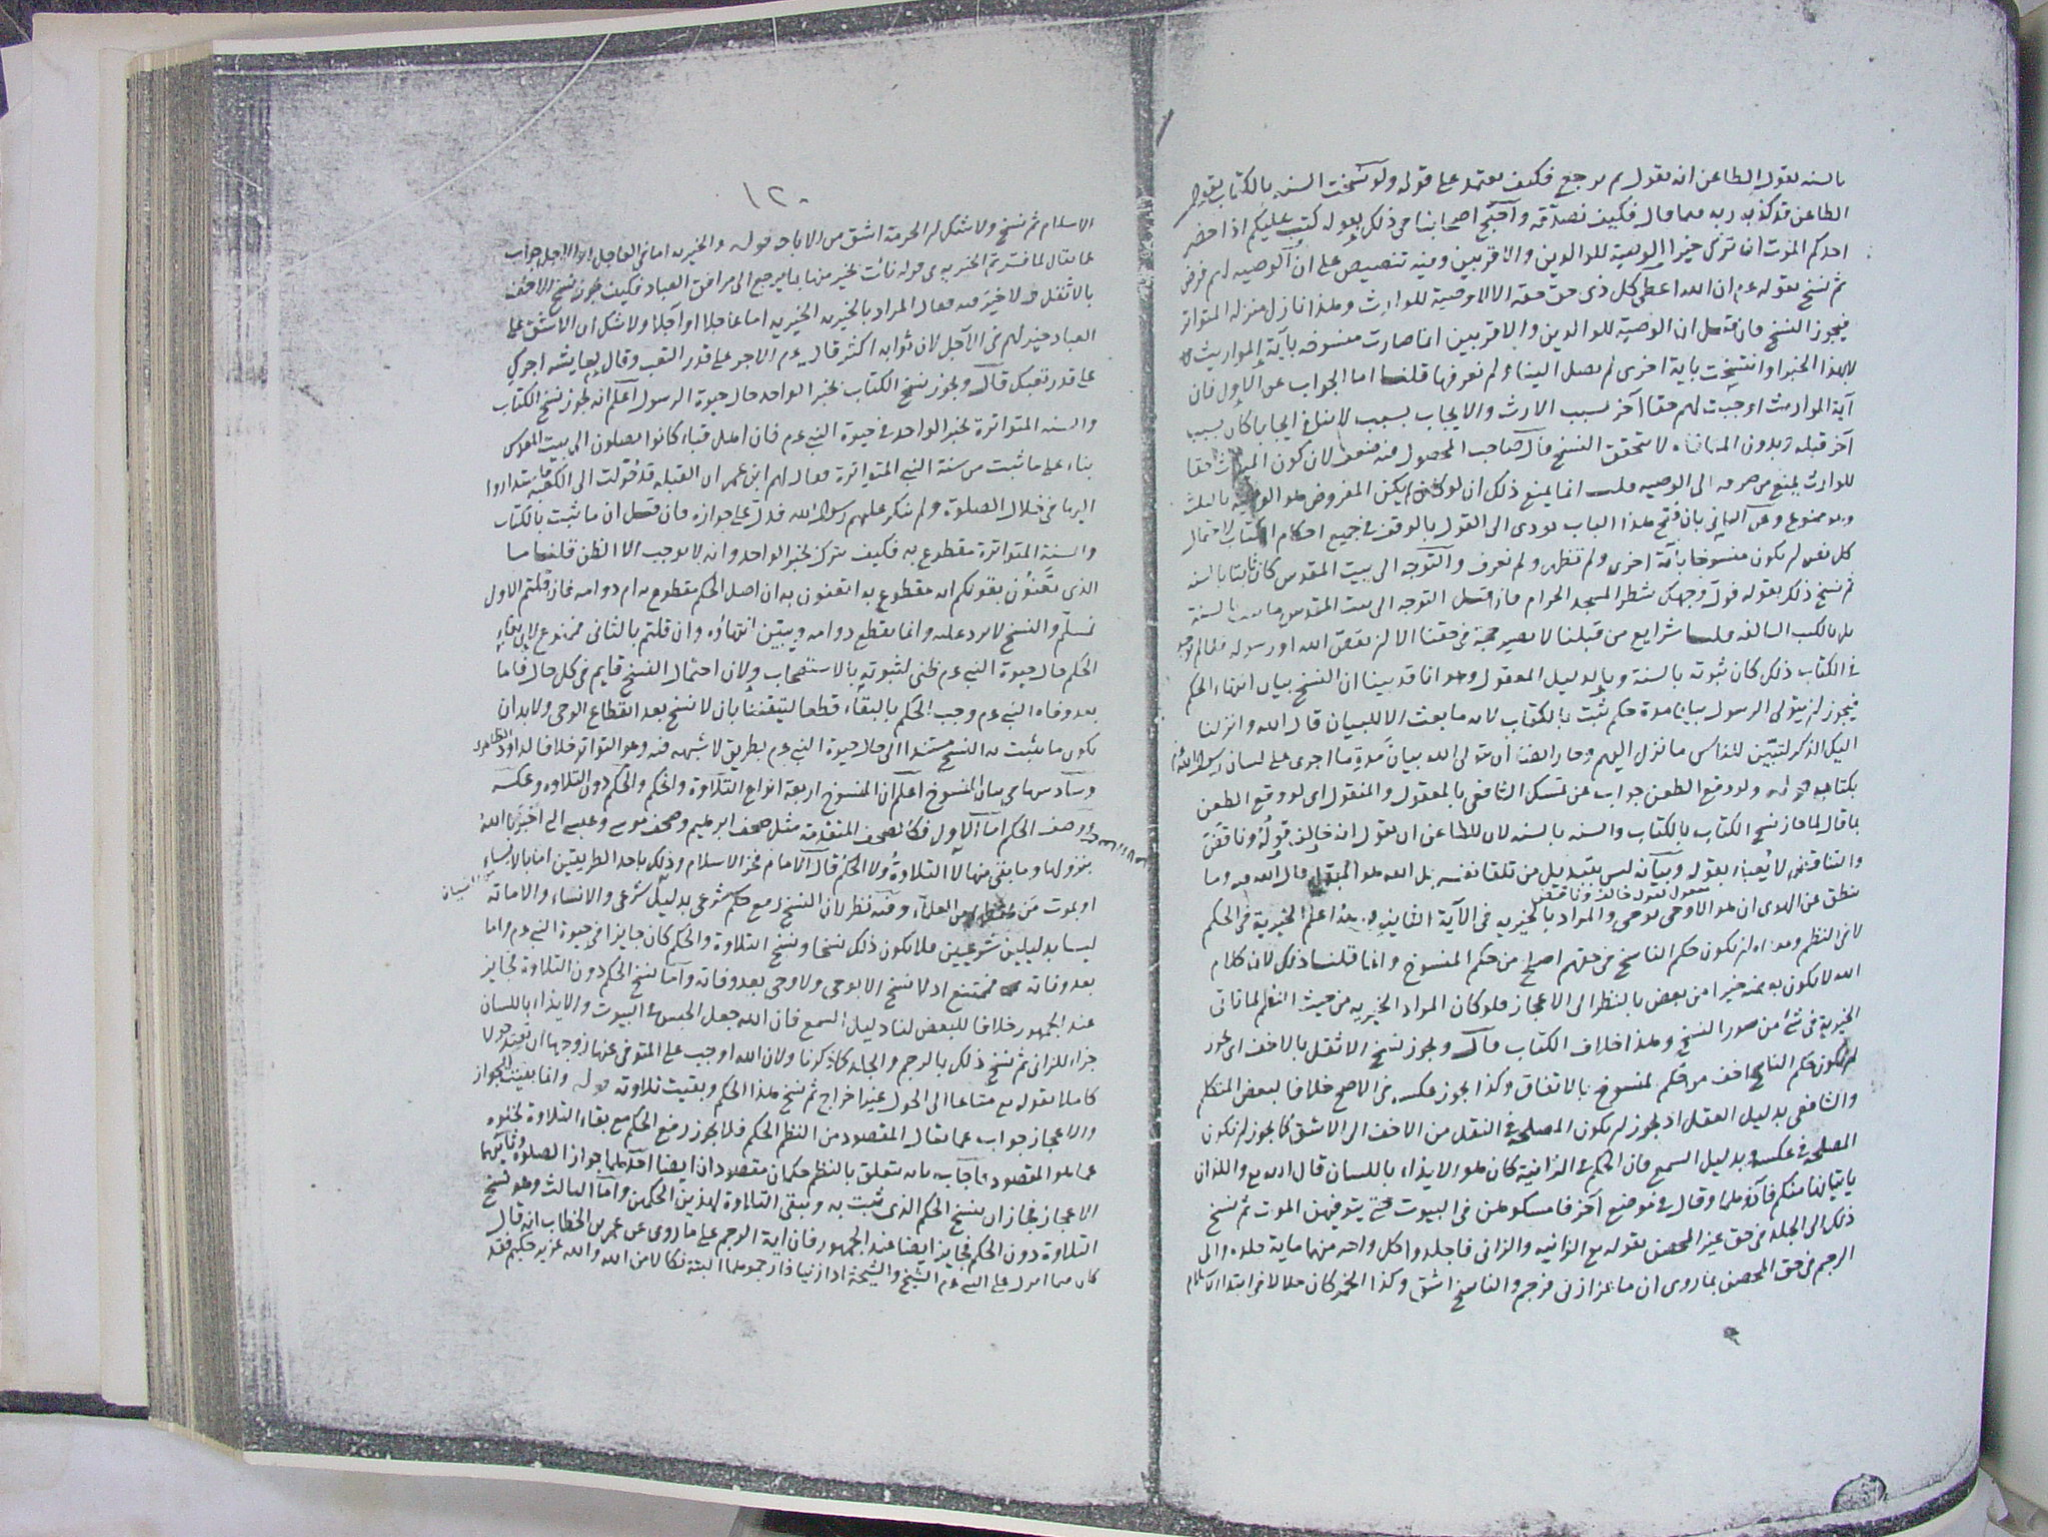 بالسنه يقول الطاعن انه يقول ما لم يرجع فكيف يعتمد على قوله ولو نسخت السنه بالكتاب يقول
الطاعن قد كذبه ربه فيما قال فكيف نصدقه واحتج اصحابنا في ذلك بقوله كتب عليكم اذا حضر
احدكم الموت ان ترك خيرا الوصية للوالدين والاقربين وفيه تنصيص على ان الوصيه لهم فرض
ثم نسخ بقوله عم ان الله اعطى كل ذى حق حقه الا لا وصية للوارث وهذا نازل منزله المتواتر
فيجوز النسخ فان قيل ان الوصية للوالدين والاقربين انما صارت منسوخه بآية المواريث
لا بهذا الخبر او انتسخت باية اخرى لم يصل الينا ولم نعرفها قلنا اما الجواب عن الاول فان
آية المواريث اوجبت لهم حقا آخر بسبب الارث والايجاب بسبب لا ينافي ايجابا كان بسبب
آخر قبله وبدون المنافاه لا يتحقق النسخ قال صاحب المحصول فيه ضعف لان كون الميراث حقا
للوارث يمنع من صرفه الى الوصيه قلنا انما يمنع ذلك ان لو كان المفروض هو الوصيه بالثلث
وهو ممنوع وعن الثاني بان فتح هذا الباب يؤدى الى القول بالوقف في جميع احكام الكتاب لاحتمال
كل نص ان يكون منسوخا بآية اخرى ولم تظهر ولم نعرف والتوجه الى بيت المقدس كان ثابتا بالسنه
ثم نسخ ذلك بقوله فول وجهك شطر المسجد الحرام فان قيل التوجه الى بيت المقدس ما ثبت بالسنة
بل بالكتب السالفه قلنا شرايع من قبلنا لا يصير حجة في حقنا الا ان يقص الله او رسوله فلما لم يوجد
في الكتاب ذلك كان ثبوته بالسنة وبالدليل المعقول وهو انا قد بينا ان النسخ بيان انتهاء الحكم
فيجوز ان يتولى الرسول بيان مدة حكم ثبت بالكتاب لانه ما بعث الا للبيان قال الله وانزلنا
اليك الذكر لتبين للناس ما نزل اليهم وجاز ايضا ان يتولى الله بيان مدة ما اجرى على لسان رسوله
بكتابه قوله ولو وقع الطعن جواب عن تمسك الشافعى بالمعقول والمنقول اى لو وقع الطعن
بما قال لما جاز نسخ الكتاب بالكتاب والسنه بالسنه لان للطاعن ان يقول انه خالف قوله وناقض
والتناقض لا يعبأ بقوله وبيانه ليس بتبديل من تلقا نفسه بل الله هو المبدل قال الله وما
يقول يقول خالف وناقض
ينطق عن الهوى ان هو الا وحى يوحى والمراد بالخيريه في الآية الثانيه هذا اعلم الخيرية في الحكم
لا في النظم ومعناه ان يكون حكم الناسخ في حقهم اصلح من حكم المنسوخ وانما قلنا ذلك لان كلام
الله لا يكون بعضه خيرا من بعض بالنظر الى الاعجاز فلو كان المراد الخيريه من حيث النظم لما تاتى
الخيرية في شئ من صور النسخ وهذا خلاف الكتاب قال ويجوز نسخ الاثقل بالاخف اى يجوز
ان يكون حكم الناسخ اخف من حكم المنسوخ بالاتفاق وكذا يجوز عكسه في الاصح خلافا لبعض المتكلم
والشافعى بدليل العقل اذ يجوز ان يكون المصلحة في النقل من الاخف الى الاشق كما يجوز ان يكون
المصلحة في عكسه وبدليل السمع فان الحكم في الزانية كان هو الايذاء باللسان قال الله تع واللذان
ياتيانها منكم فآذوهما وقال في موضع آخر فامسكوهن في البيوت حتى يتوفيهن الموت ثم نسخ
ذلك الى الجلد في حق غير المحصن بقوله تع الزانيه والزانى فاجلدوا كل واحد منهما ماية جلده والى
الرجم في حق المحصن بما روى ان ماعزا زنى فرجم والناسخ اشق وكذا الخمر كان حلالا في ابتداء الاسلام
١٢٠
الاسلام ثم نسخ ولا شك ان الحرمة اشق من الاباحه قوله والخيريه اما في العاجل او الآجل جواب
عما يقال لما فسرتم الخيريه في قوله نأت بخير منها بما يرجع الى مرافق العباد فكيف يجوز نسخ الاخف
بالاثقل ولا خير فيه فقال المراد بالخيريه الخيريه اما عاجلا او آجلا ولا شك ان الاشق على
العباد خير لهم في الآجل لان ثوابه اكثر قال عم الاجر على قدر التعب وقال لعايشه اجرك
على قدر تعبك قال ويجوز نسخ الكتاب بخبر الواحد حال حيوة الرسول اعلم انه يجوز نسخ الكتاب
والسنه المتواترة بخبر الواحد في حيوة النبى عم فان اهل قباء كانوا يصلون الى بيت المقدس
بناء على ما ثبت من سنة النبى المتواترة فقال لهم ابن عمر ان القبله قد حولت الى الكعبه فاستداروا
اليها في خلال الصلوة ولم ينكر عليهم رسول الله فدل على جوازه فان قيل ان ما ثبت بالكتاب
والسنة المتواترة مقطوع به فكيف يترك بخبر الواحد وانه لا يوجب الا الظن قلنا ما
الذى تعنون بقولكم انه مقطوع به اتعنون به ان اصل الحكم مقطوع به ام دوامه فان قلتم الاول
فمسلم والنسخ لا يرد عليه وانما يقطع دوامه ويبين انتهاؤه وان قلتم بالثانى فممنوع لان بقاء
الحكم حال حيوة النبى عم ظنى لثبوته بالاستصحاب ولان احتمال النسخ قايم في كل حال فاما
بعد وفاه النبى عم وجب الحكم بالبقاء قطعا لتيقننا بان لا نسخ بعد انقطاع الوحى ولا بد ان
يكون ما يثبت به النسخ مستندا الى حال حيوة النبى عم بطريق لا شبهه فيه وهو التواتر خلافا لداود الظاهرى
وسادسها في بيان المنسوخ اعلم ان المنسوخ اربعة انواع التلاوة والحكم والحكم دون التلاوه وعكسه
ووصف الحكم اما الاول فكالصحف المتقدمة مثل صحف ابرهيم وصحف موسى وعيسى التى اخبرنا الله
بنزولها وما بقى منها لا التلاوة ولا الحكم قال الامام فخر الاسلام وذلك باحد الطريقين اما بالانساء
من النسيان
او بموت من يحفظه من العلماء وفيه نظر لان النسخ رفع حكم شرعى بدليل شرعى والانساء والاماته
ليسا بدليلين شرعيين فلا يكون ذلك نسخا ونسخ التلاوة والحكم كان جايزا في حيوة النبى عم واما
بعد وفاته فممتنع اذ لا نسخ الا بوحى ولا وحى بعد وفاته واما نسخ الحكم دون التلاوة فجايز
عند الجمهور خلافا للبعض لنا دليل السمع فان الله جعل الحبس في البيوت والايذاء باللسان
جزاء للزانى ثم نسخ ذلك بالرجم والجلد كما ذكرنا ولان الله اوجب على المتوفى عنها زوجها ان تعتد حولا
كاملا بقوله تع متاعا الى الحول غير اخراج ثم نسخ هذا الحكم وبقيت تلاوته قوله وانما بقيت الجواز
والاعجاز جواب عما يقال المقصود من النظم الحكم فلا يجوز رفع الحكم مع بقاء التلاوة لخلوه
عما هو المقصود فاجاب بانه يتعلق بالنظم حكمان مقصودان ايضا احدهما جواز الصلوة وثانيهما
الاعجاز فجاز ان ينسخ الحكم الذى ثبت به وتبقى التلاوة لهذين الحكمين واما الثالث وهو نسخ
التلاوة دون الحكم فجايز ايضا عند الجمهور فان اية الرجم على ما روى عن عمر بن الخطاب انه قال
كان مما انزل على النبى عم الشيخ والشيخة اذا زنيا فارجموهما البتة نكالا من الله والله عزيز حكيم فقد